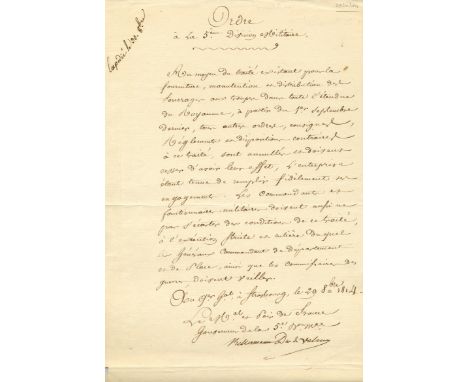 Expédié le 30. 8bre
Ordre
à La 5e. Division Militaire.
Au moyen du traité existant pour la
fourniture, manutention et distribution des
fourrages aux troupes dans toute l'étendue
du Royaume, à partir du 1er Septembre
dernier, tous autres ordres, consignes,
Réglements et dispositions contraires
à ce traité, sont annullés et doivent
cesser d'avoir leur effet, L'entreprise
étant tenue de remplir fidèlement ses
engagements. Les Commandants et
fonctionnaires militaires doivent aussi ne
pas s'écarter des conditions de ce traité,
à l'exécution stricte et entière duquel
les Généraux Commandant de département
et de Place, ainsi que les Commissaires des
guerres, doivent veiller.
Au qer Gal. à Strasbourg, le 29 8bre 1814.
Le Mal et Pair de France
Gouverneur de la 5e. Don. Mre
Kellermann Duc de Valmy